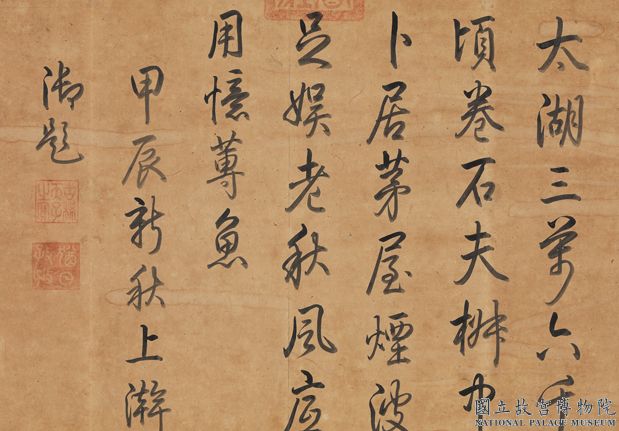 太湖三萬六千
頃卷石夫椒中
卜居茅屋煙波
足娛老秋風底
用憶蓴魚
甲辰新秋上澣
御題
國立故宮博物院
NATIONAL PALACE MUSEUM